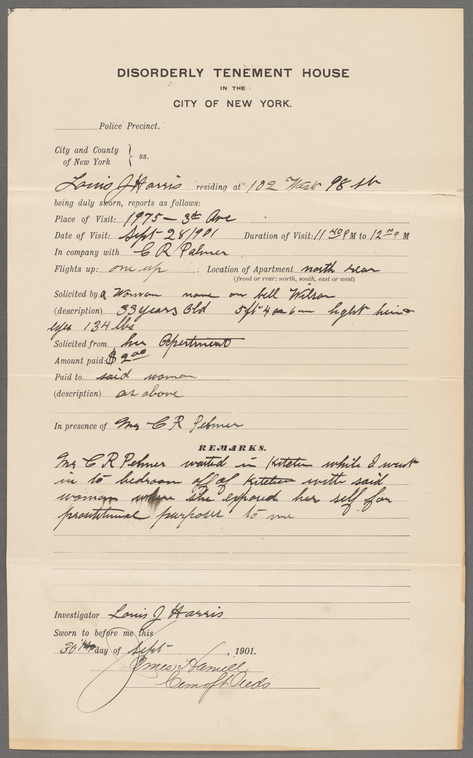 DISORDERLY TENEMENT HOUSE
IN THE
CITY OF NEW YORK.
Police Precinct.
City and County
of New York } ss.
Louis J Harris residing at 102 West 98 st
being duly sworn, reports as follows:
Place of Visit: 1975 - 3rd Ave
Date of Visit: Sept 28/1901 Duration of Visit: 11 PM to 12 M
In company with C R Palmer
Flights up: one up Location of Apartment north rear
(front or rear: north, south, east or west)
Solicited by a Woman name on bell Wilson
(description) 33 years Old 5ft 4 light hair
eyes 134 lbs
Solicited from her Apartment
Amount paid: $2.00
Paid to said woman
(description) as above
In presence of Mr C R Palmer
REMARKS.
Mr C R Palmer waited in Kitchen while I went
in to bedroom off of Kitchen with said
woman where she exposed her self for
purposes to me
Investigator Louis J Harris
Sworn to before me this
30 day of Sept , 1901.
James Hamill
Com of Deeds